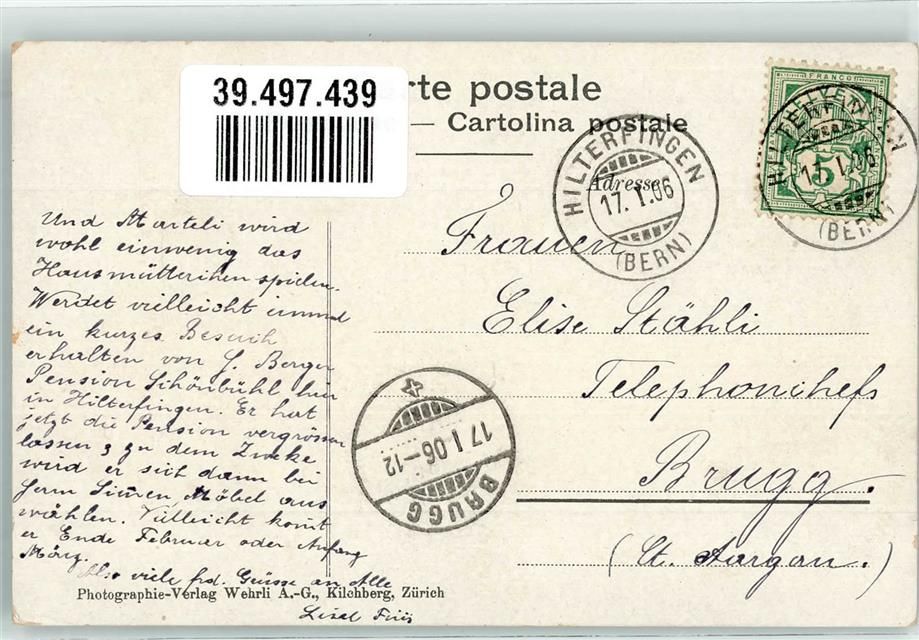 39.497.439
rte postale
Cartolina postale
Adresse
HILTERFINGEN
17. I. 06
(BERN)
FRANCO
5
HILTERFINGEN
17. I. 06
(BERN)
Und Marteli wird
wohl einwenig das
Hausmütterchen spielen.
Werdet vielleicht einmal
ein kurzes Besuch
erhalten von G. Berger
Pension Schönbühl hier
in Hilterfingen. Er hat
jetzt die Pension vergrössern
lassen & zu dem Zweke
wird er sich dann bei
Herrn Möbel aus
wählen. Villeicht komt
er Ende Februar oder Anfang
März.
Also viele frd. Grüsse an Alle
Lisel
Frauen
Elise Stähli
Telephonchefs
Brugg.
(Ct. Aargau.)
BRUGG
17 I 06-12
Photographie-Verlag Wehrli A.-G., Kilchberg, Zürich